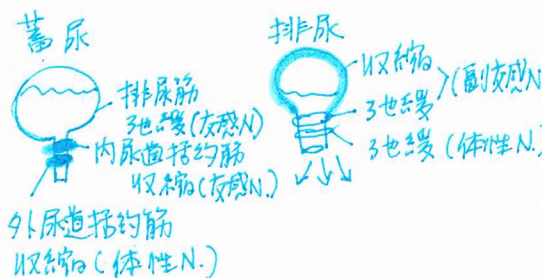 蓄尿
排尿筋
弛緩(交感N)
内尿道括約筋
収縮(交感N.)
外尿道括約筋
収縮(体性N.)
排尿
収縮
弛緩
(副交感N
弛緩(体性N.)